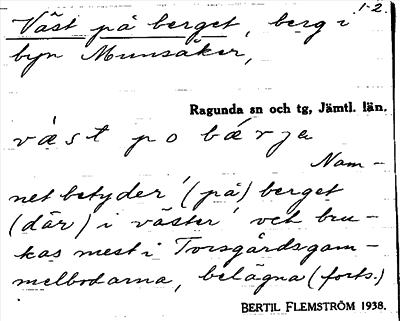 1-2.
Väst på berget, berg i
byn Munsåker,
Ragunda sn och tg, Jämtl. län.
væst po bærja
Nam-
net betyder ' (på) berget
(där) i väster' och bru-
kas mest i Torsgårdsgam-
melbodarna, belägna (forts.)
BERTIL FLEMSTRÖM 1938.